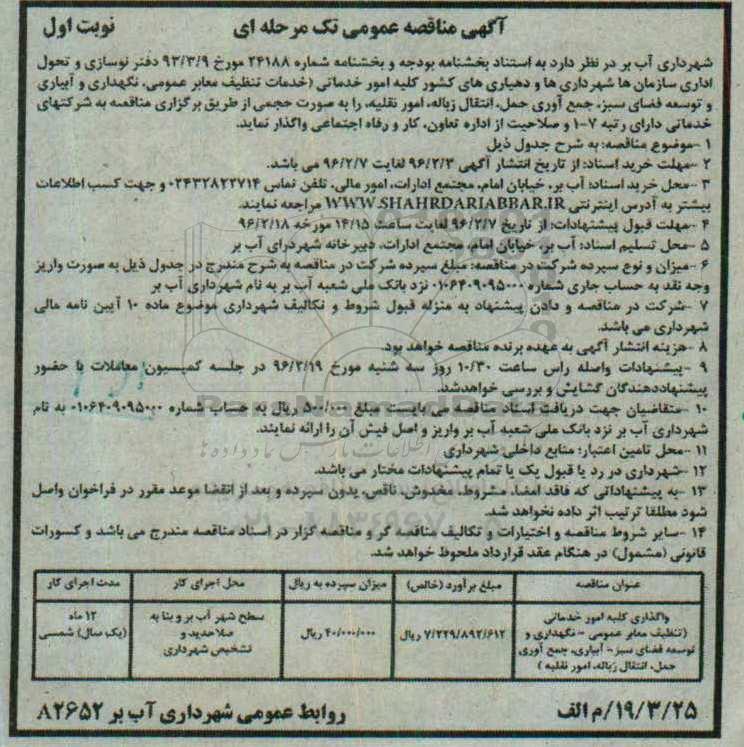 آگهی مناقصه عمومی تک مرحله ای
نوبت اول
شهرداری آب بر در نظر دارد به استناد بخشنامه بودجه و بخشنامه شماره ۲۴۱۸۸ مورخ ۹۳/۳/۹ دفتر نوسازی و تحول
اداری سازمان ها شهرداری ها و دهیاری های کشور کلیه امور خدماتی (خدمات تنظیف معابر عمومی، نگهداری و آبیاری
و توسعه فضای سبز، جمع آوری حمل، انتقال زباله، امور نقلیه، را به صورت حجمی از طریق برگزاری مناقصه به شرکتهای
خدماتی دارای رتبه ۷-۱ و صلاحیت از اداره تعاون، کار و رفاه اجتماعی واگذار نماید.
۱ -موضوع مناقصه: به شرح جدول ذیل
۲ -مهلت خرید اسناد: از تاریخ انتشار آگهی ۹۶/۲/۳ لغایت ۹۶/۲/۷ می باشد.
۳ -محل خرید اسناد: آب بر، خیابان امام، مجتمع ادارات، امور مالی، تلفن تماس ۰۲۴۳۲۸۲۲۷۱۴ و جهت کسب اطلاعات
بیشتر به آدرس اینترنتی WWW.SHAHRDARIABBAR.IR مراجعه نمایند.
۴ -مهلت قبول پیشنهادات: از تاریخ ۹۶/۲/۷ لغایت ساعت ۱۴/۱۵ مورخه ۹۶/۲/۱۸
۵ -محل تسلیم اسناد: آب بر، خیابان امام، مجتمع ادارات، دبیرخانه شهردرای آب بر
۶ -میزان و نوع سپرده شرکت در مناقصه: مبلغ سپرده شرکت در مناقصه به شرح مندرج در جدول ذیل به صورت واریز
وجه نقد به حساب جاری شماره ۰۱۰۶۴۰۹۰۹۵۰۰۰ نزد بانک ملی شعبه آب بر به نام شهرداری آب بر
۷ -شرکت در مناقصه و دادن پیشنهاد به منزله قبول شروط و تکالیف شهرداری موضوع ماده ۱۰ آیین نامه مالی
شهرداری می باشد.
۸ -هزینه انتشار آگهی به عهده برنده مناقصه خواهد بود.
۹ -پیشنهادات واصله رأس ساعت ۱۰/۳۰ روز سه شنبه مورخ ۹۶/۲/۱۹ در جلسه کمیسیون معاملات با حضور
پیشنهاددهندگان گشایش و بررسی خواهدشد.
۱۰ -متقاضیان جهت دریافت اسناد مناقصه می بایست مبلغ ۵۰۰/۰۰۰ ریال به حساب شماره ۰۱۰۶۴۰۹۰۹۵۰۰۰ به نام
شهرداری آب بر نزد بانک ملی شعبه آب بر واریز و اصل فیش آن را ارائه نمایند.
۱۱ -محل تامین اعتبار: منابع داخلی شهرداری
۱۲ -شهرداری در رد یا قبول یک یا تمام پیشنهادات مختار می باشد.
۱۳ -به پیشنهاداتی که فاقد امضا، مشروط، مخدوش، ناقص، بدون سپرده و بعد از انقضا موعد مقرر در فراخوان واصل
شود مطلقا ترتیب اثر داده نخواهد شد.
۱۴ -سایر شروط مناقصه و اختیارات و تکالیف مناقصه گر و مناقصه گزار در اسناد مناقصه مندرج می باشد و کسورات
قانونی (مشمول) در هنگام عقد قرارداد ملحوظ خواهد شد.
عنوان مناقصه
مبلغ برآورد (خالص)
میزان سپرده به ریال
محل اجرای کار
مدت اجرای کار
واگذاری کلیه امور خدماتی
(تنظیف معابر عمومی - نگهداری و
توسعه فضای سبز- آبیاری، جمع آوری
حمل، انتقال زباله، امور نقلیه )
۷/۲۲۹/۸۹۲/۶۱۲ ریال
۴۰/۰۰۰/۰۰۰ ریال
سطح شهر آب بر و بنا به
صلاحدید و
تشخیص شهرداری
۱۲ ماه
(یک سال) شمسی
۱۹/۳/۲۵/م الف
روابط عمومی شهرداری آب بر ۸۲۶۵۲A